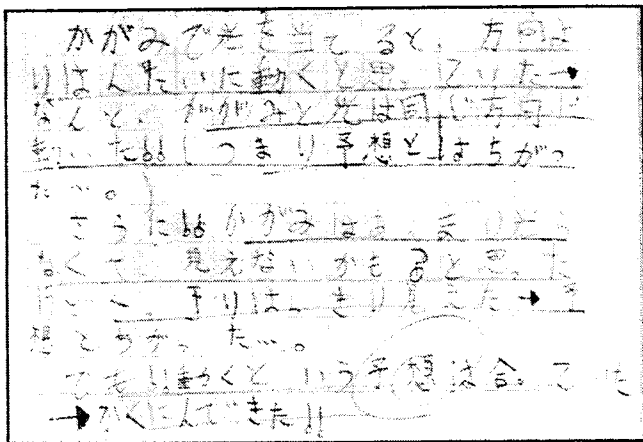 かがみで光を当てると、方向よ
りはんたいに動くと思っていた→
なんと。かがみと光は同じ方向に
動いた!!しつまり予想とはちがっ
た…。
さらに!!かがみは
くて、見えないかもると思った
はっきり見えた→予
想とちがった…。
でも!!動くという予想は合ってた
→かくにんできた!!